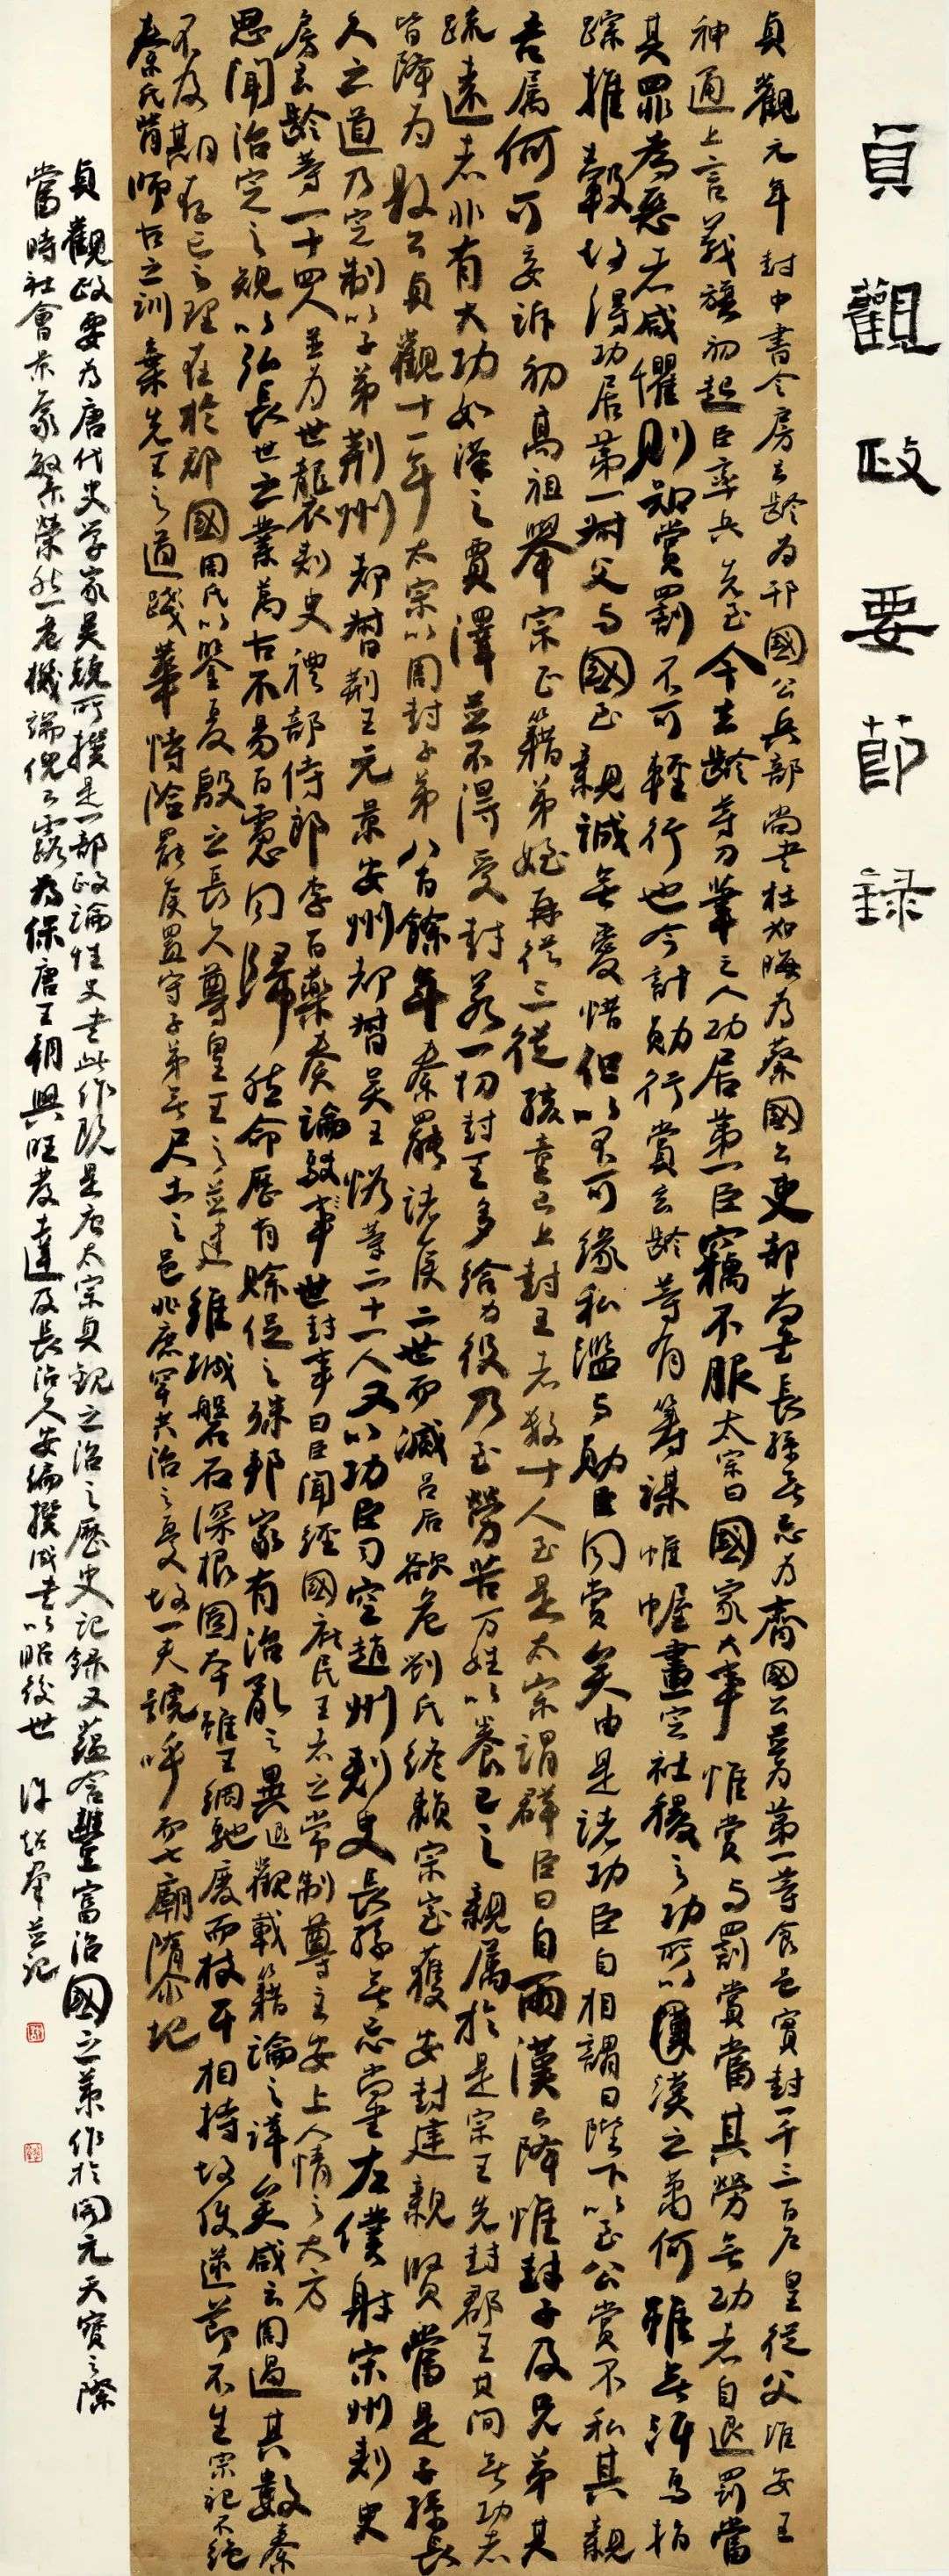 貞觀政要節録
貞觀元年封中書令房玄龄為邗國公兵部尚書杜如晦為蔡國公吏部尚書長孫無忌為齊國公並為第一等食邑實封一千三百户皇從父淮安王
神通上言義旗初起臣率兵先至今玄龄等刀筆之人功居第一臣竊不服太宗曰國家大事惟賞与罰賞當其勞無功者自退罰當
其罪為惡者咸懼則知賞罰不可輕行也今計勛行賞玄龄等有籌謀帷幄畫定社稷之功所以漢之蕭何雖無汗馬指
踪推轂故得功居第一叔父与國至親誠無愛惜但以不可緣私濫与勛臣同賞矣由是諸功臣自相謂曰陛下以至公賞不私其親
吾属何可妄訴初高祖舉宗正籍弟姪再從三從孩童已上封王者数十人至是太宗謂群臣曰自兩漢已降惟封子及兄弟其
疏遠者非有大功如漢之賈澤並不得受封若一切封王多給力役乃至勞苦万姓以養己之親属於是宗王先封郡王其间無功者
皆降为縣公貞觀十一年太宗以周封子弟八百餘年秦罷諸侯二世而滅吕后欲危劉氏终賴宗室獲安封建親賢當是子孫長
久之道乃定制以子弟荆州都督荆王元景安州都督吴王恪等二十一人又以功臣司空趙州刺史長孫無忌尚書左僕射宋州刺史
房玄龄等一十四人並为世襲刺史禮部侍郎李百藥奏論駁世封事曰臣闻經國庇民王者之常制尊主安上人情之大方
思闻治定之規以弘長世之業萬古不易百慮同歸然命歷有賒促之殊邦家有治亂之異遐觀載籍論之詳矣咸云周過其數秦
不及期存亡之理在於郡國周氏以鑒夏殷之長久尊皇王之並建維城磐石深根固本雖王綱馳廢而枝干相持故使逆節不生宗祀不绝
秦氏背師古之訓棄先王之道踐華恃險罷侯置守子弟無尺土之邑兆庶罕共治之憂故一夫號呼而七廟隳圮
貞觀政要为唐代史学家吴兢所撰是一部政論性史書此作既是唐太宗貞觀之治之歷史記録又蕴含豐富治國之策作於開元天寶之際
當時社會景象繁榮然危機端倪已露为保唐王朝興旺發達及長治久安编撰成書以昭後世 並記